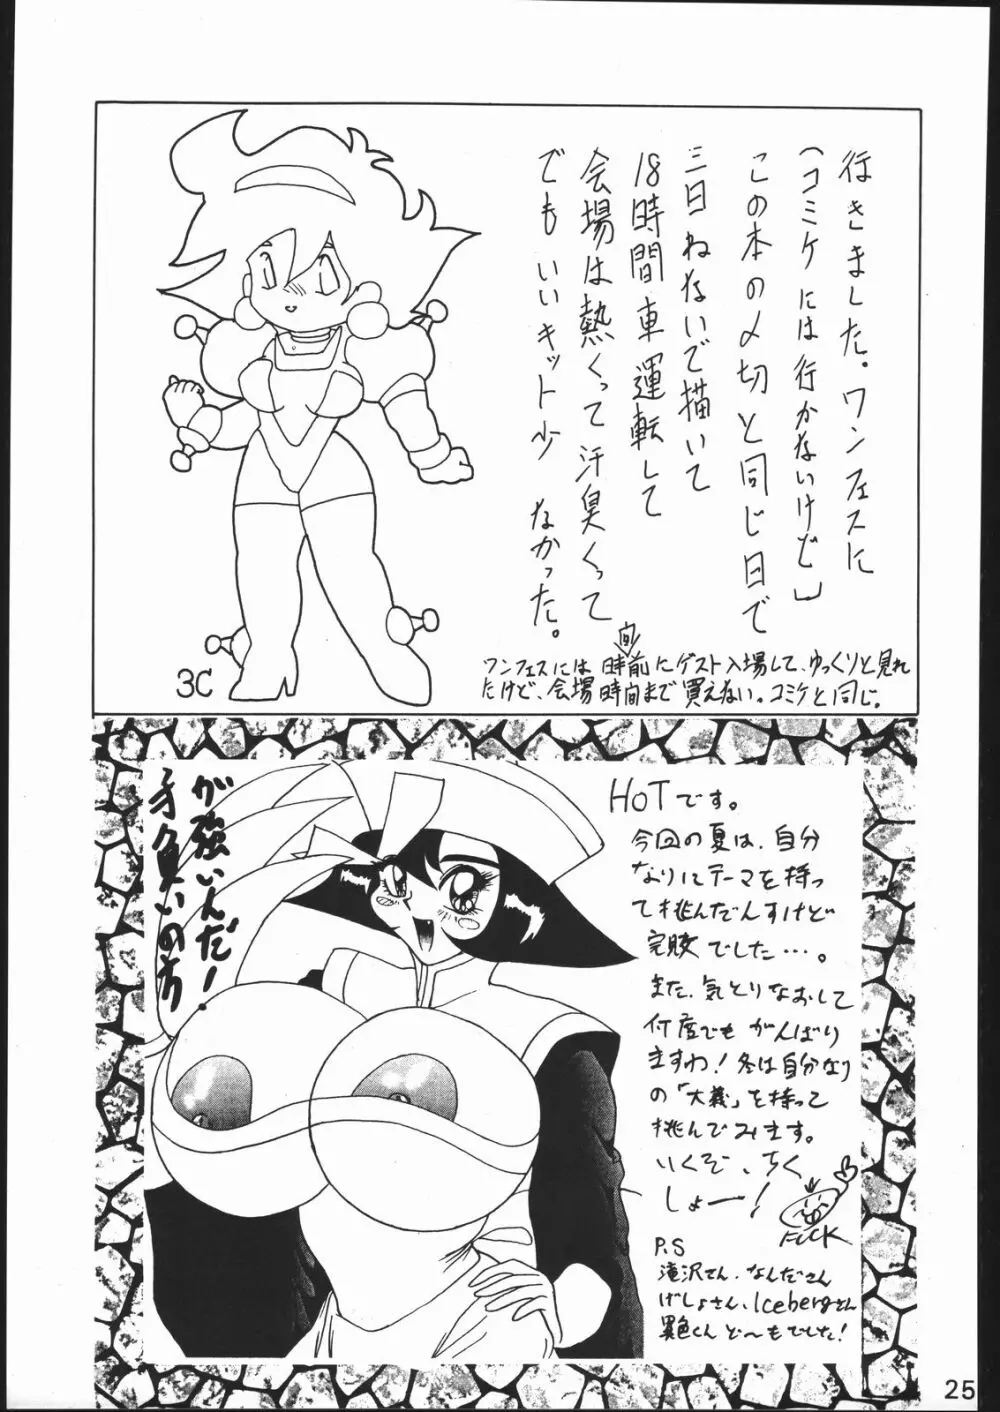 行きました。ワンフェスに
(コミケには行かないけど)
この本の〆切と同じ日で
三日ねないで描いて
18時間車運転して
会場は熱くって汗臭くって
でもいいキット少なかった。
ワンフェスには 時間前にゲスト入場して、ゆっくりと見れ
たけど、会場時間まで買えない。コミケと同じ。
3C
HOTです。
今回の夏は、自分
なりにテーマを持っ
て挑んだんすけど
完敗でした…。
また、気とりなおして
何度でもがんばり
ますわ!冬は自分なり
の「大義」を持って
挑んでみます。
いくぞ、ちく
しょー!
FUCK
P.S
滝沢さん、なんださん
げしょさん、Icebergさん
異色くん ど〜もでした!
の方
が強いんだ!
25